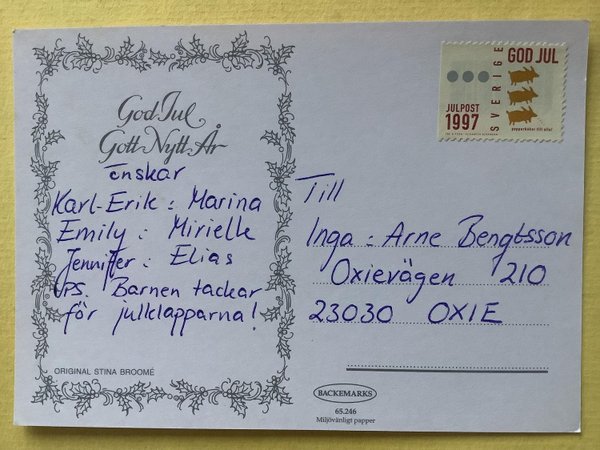 God Jul
Gott Nytt År
önskar
Karl-Erik : Marina
Emily : Mirielle
Jennifer : Elias
PS. Barnen tackar
för julklapparna!
ORIGINAL STINA BROOMÉ
SVERIGE
GOD JUL
JULPOST
1997
pepparkakor till alla!
Till
Inga : Arne Bengtsson
Oxievägen 210
23030 OXIE
BACKEMARKS
65.246
Miljövänligt papper